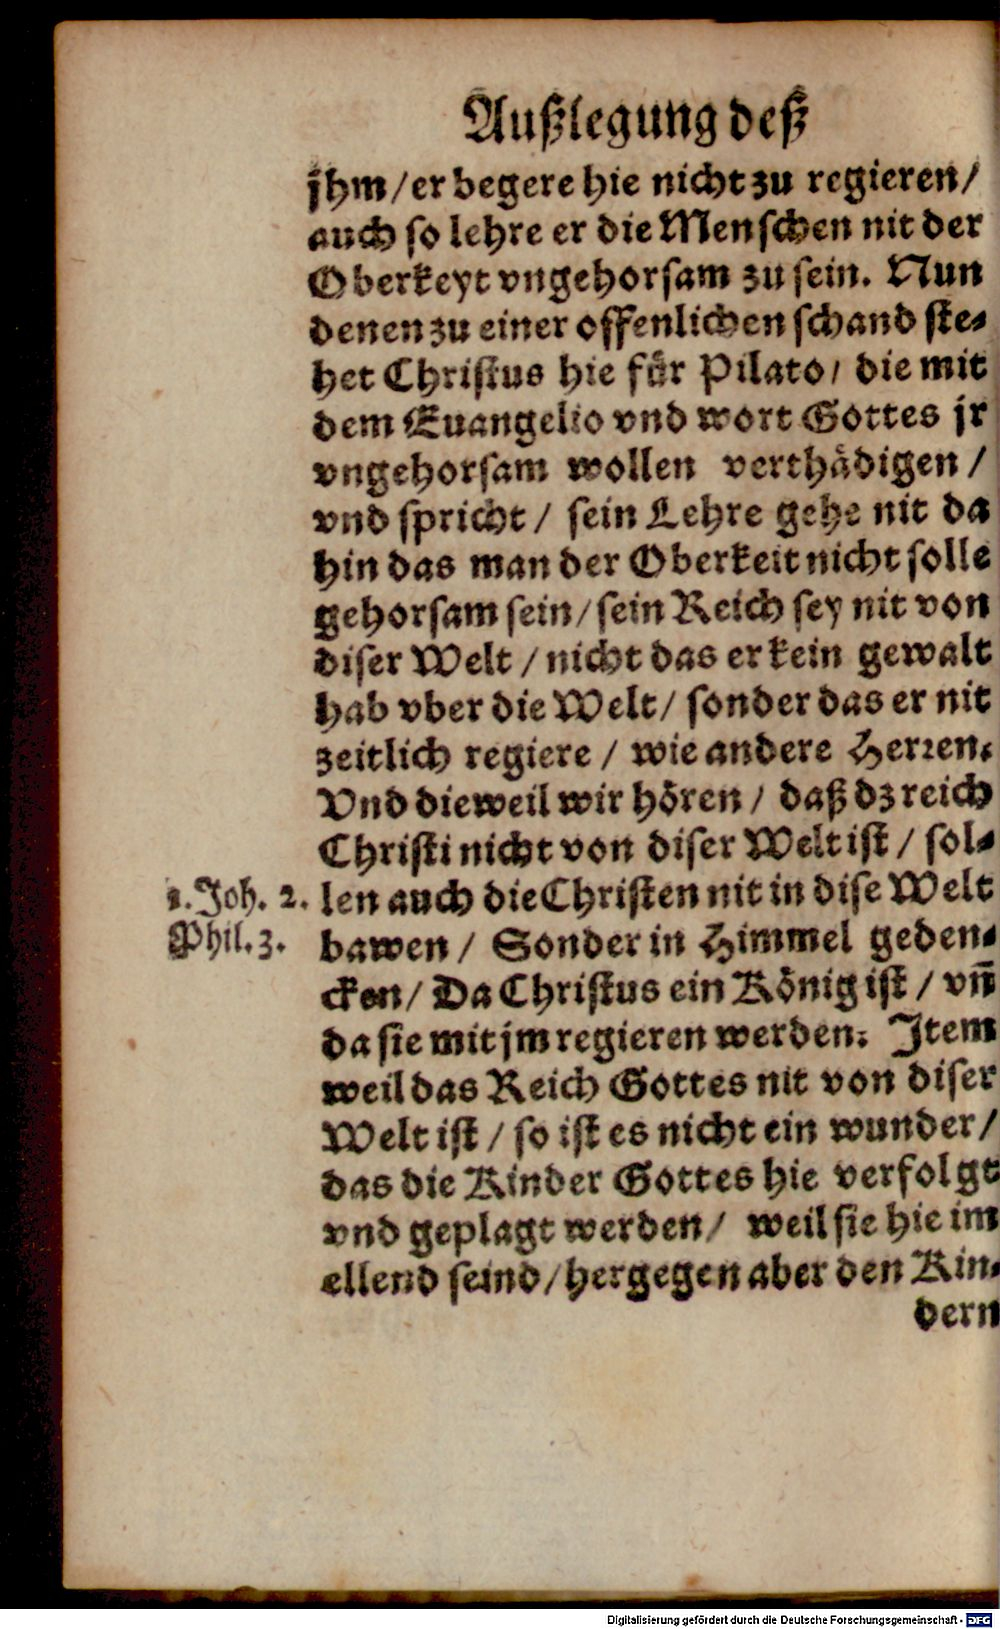 Außlegung deß
jhm / er begere hie nicht zu regieren /
auch so lehre er die Menschen nit der
Oberkeyt vngehorsam zu sein. Nun
denen zu einer offenlichen schand ste-
het Christus hie für Pilato / die mit
dem Euangelio vnd wort Gottes jr
vngehorsam wollen verthädigen /
vnd spricht / sein Lehre gehe nit da
hin das man der Oberkeit nicht solle
gehorsam sein / sein Reich sey nit von
diser Welt / nicht das er kein gewalt
hab vber die Welt / sonder das er nit
zeitlich regiere / wie andere Herren.
Vnd dieweil wir hören / daß dz reich
Christi nicht von diser Welt ist / sol-
1. Joh. 2. len auch die Christen nit in dise Welt
Phil. 3. bawen / Sonder in Himmel geden-
cken / Da Christus ein König ist / vn̄
da sie mit jm regieren werden. Item
weil das Reich Gottes nit von diser
Welt ist / so ist es nicht ein wunder /
das die Kinder Gottes hie verfolgt
vnd geplagt werden / weil sie hie im
ellend seind / hergegen aber den Kin-
dern
Digitalisierung gefördert durch die Deutsche Forschungsgemeinschaft - DFG